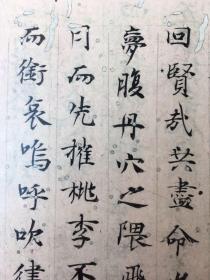 回賢哉共盡命
夢腹丹穴之隈
月而先摧桃李不
而銜哀嗚呼吹律